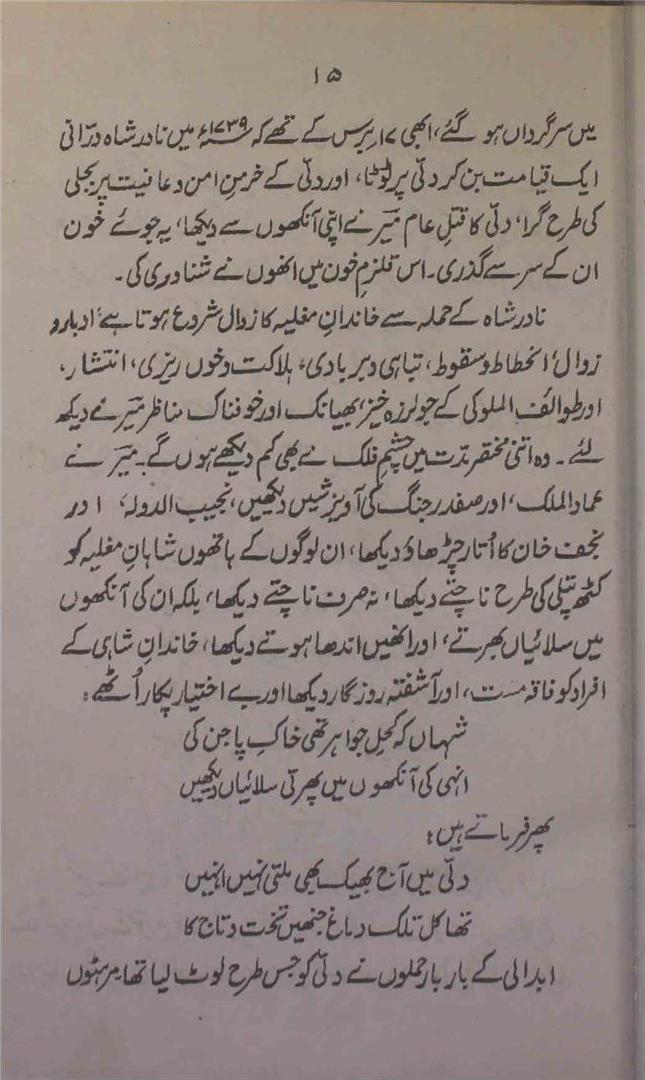 ۱۵
میں سرگرداں ہو گئے، ابھی ۱۷ برس کے تھے کہ ۱۷۳۹ء میں نادر شاہ درّانی
ایک قیامت بن کر دلّی پر ٹوٹا، اور دلّی کے خرمنِ امن و عافیت پر بجلی
کی طرح گرا، دلّی کا قتلِ عام میرؔ نے اپنی آنکھوں سے دیکھا، یہ جوئے خون
ان کے سر سے گذری۔ اس قلزمِ خون میں انھوں نے شناوری کی۔
نادر شاہ کے حملہ سے خاندانِ مغلیہ کا زوال شروع ہوتا ہے، ادبار و
زوال، انحطاط و سقوط، تباہی و بربادی، ہلاکت و خوں ریزی، انتشار،
اور طوائف الملوکی کے جو لرزہ خیز، بھیانک اور خوفناک مناظر میرؔ نے دیکھ
لئے۔ وہ اتنی مختصر مدّت میں چشمِ فلک نے بھی کم دیکھے ہوں گے۔ میرؔ نے
عماد الملک، اور صفدر جنگ کی آویزشیں دیکھیں، نجیب الدولہ، اور
نجف خان کا اُتار چڑھاؤ دیکھا، ان لوگوں کے ہاتھوں شاہانِ مغلیہ کو
کٹھ پتلی کی طرح ناچتے دیکھا، نہ صرف ناچتے دیکھا، بلکہ ان کی آنکھوں
میں سلائیاں بھرتے، اور انھیں اندھا ہوتے دیکھا، خاندانِ شاہی کے
افراد کو فاقہ مست، اور آشفتہ روزگار دیکھا اور بے اختیار پکار اُٹھے:
شہاں کہ کحلِ جواہر تھی خاکِ پا جن کی
انہی کی آنکھوں میں پھرتی سلائیاں دیکھیں
پھر فرماتے ہیں:
دلّی میں آج بھیک بھی ملتی نہیں انہیں
تھا کل تلک دماغ جنھیں تخت و تاج کا
ابدالی کے بار بار حملوں نے دلّی کو جس طرح لوٹ لیا تھا مرہٹوں